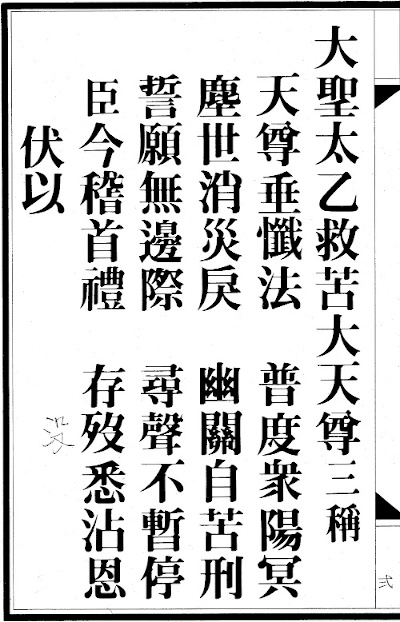 大聖太乙救苦大天尊三稱
天尊垂懺法 普度衆陽冥
塵世消災戾 幽關自苦刑
誓願無邊際 尋聲不暫停
臣今稽首禮 存歿悉沾恩
伏以
没
弍